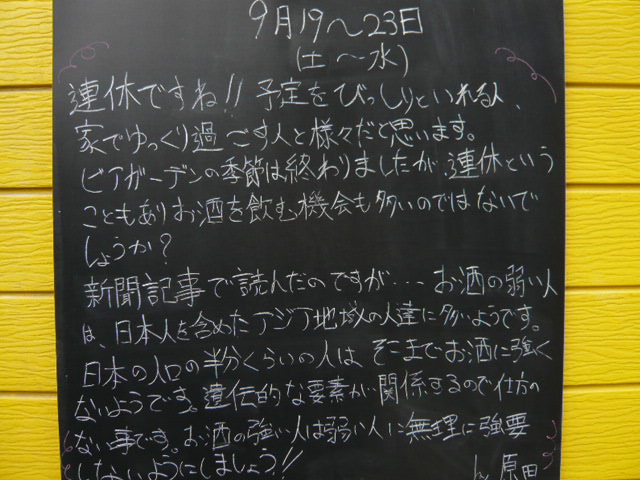 9月19～23日
(土～水)
連休ですね!! 予定をびっしりといれる人、
家でゆっくり過ごす人と様々だと思います。
ビアガーデンの季節は終わりましたが、連休という
こともありお酒を飲む機会も多いのではないで
しょうか?
新聞記事で読んだのですが…お酒の弱い人
は、日本人を含めたアジア地域の人達に多いようです。
日本の人口の半分くらいの人は、そこまでお酒に強く
ないようです。遺伝的な要素が関係するので仕方の
ない事です。お酒の強い人は弱い人に無理に強要
しないようにしましょう!! by 原田